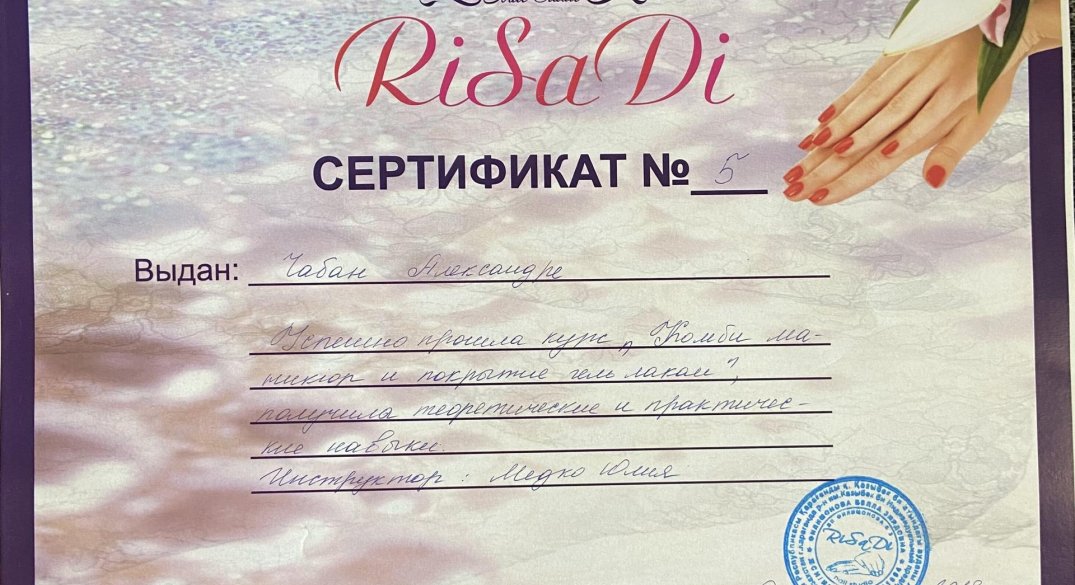 RiSaDi
СЕРТИФИКАТ № 5
Выдан: Чабан Александре
Успешно прошла курс „Комби ма-
никюр и покрытие гель лаком",
получила теоретические и практичес-
кие навыки.
Инструктор: Медко Юлия
RiSaDi
nail studio